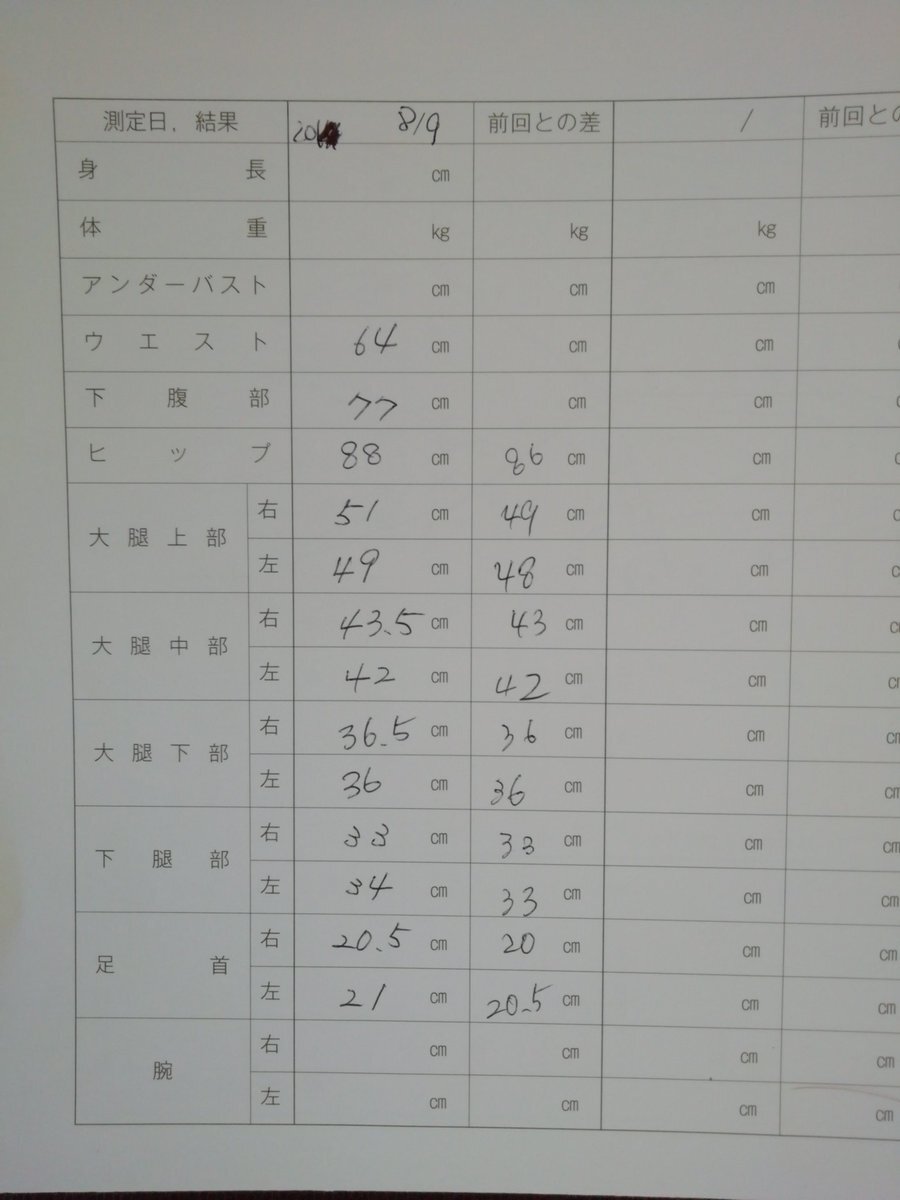 測定日, 結果 8/9 前回との差 / 前回との
身長 cm
体重 kg kg kg
アンダーバスト cm cm cm
ウエスト 64 cm cm cm
下腹部 77 cm cm cm
ヒップ 88 cm 86 cm cm
大腿上部 右 51 cm 49 cm cm
左 49 cm 48 cm cm
大腿中部 右 43.5 cm 43 cm cm
左 42 cm 42 cm cm
大腿下部 右 36.5 cm 36 cm cm
左 36 cm 36 cm cm
下腿部 右 33 cm 33 cm cm
左 34 cm 33 cm cm
足首 右 20.5 cm 20 cm cm cm
左 21 cm 20.5 cm cm cm
腕 右 cm cm cm cm
左 cm cm cm cm